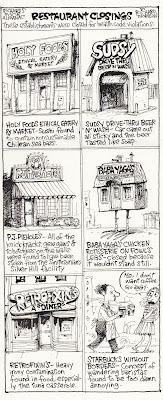 RESTAURANT CLOSINGS
These establishments were closed for health code violations:
HOLY FOODS
ETHICAL EATERY
& MARKET
SUDSY
DRIVE-THRU
BEER N' WASH
HOLY FOODS ETHICAL EATERY
& MARKET - Sushi found
to contain unsustainable
Chilean sea bass
SUDSY DRIVE-THRU BEER
N' WASH - Car came out
all sticky and the beer
tasted like soap
BABA YAGA'S
P.J. PIEHOLE'S - All of the
knickknacks, gewgaws &
tchotchkes on the walls
were found to have been
stolen from the Smithsonian's
Silver Hill facility
BABA YAGA'S CHICKEN
ROTISSERIE ON FOWL'S
LEGS - closed because
it wouldn't stand still
RETROFIXIN'S
No! I don't
want coffee
RETROFIXIN'S - Heavy
irony contamination
found in food, especial-
ly the tuna casserole
STARBUCKS WITHOUT
BORDERS - Concept of
wandering baristas
found to be too damn
annoying